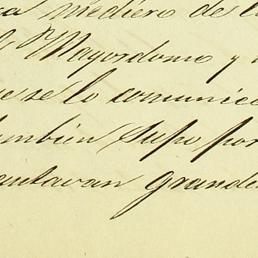 mediero de
Mayordomo y
se lo comunic
tambien supo por
entavan grande